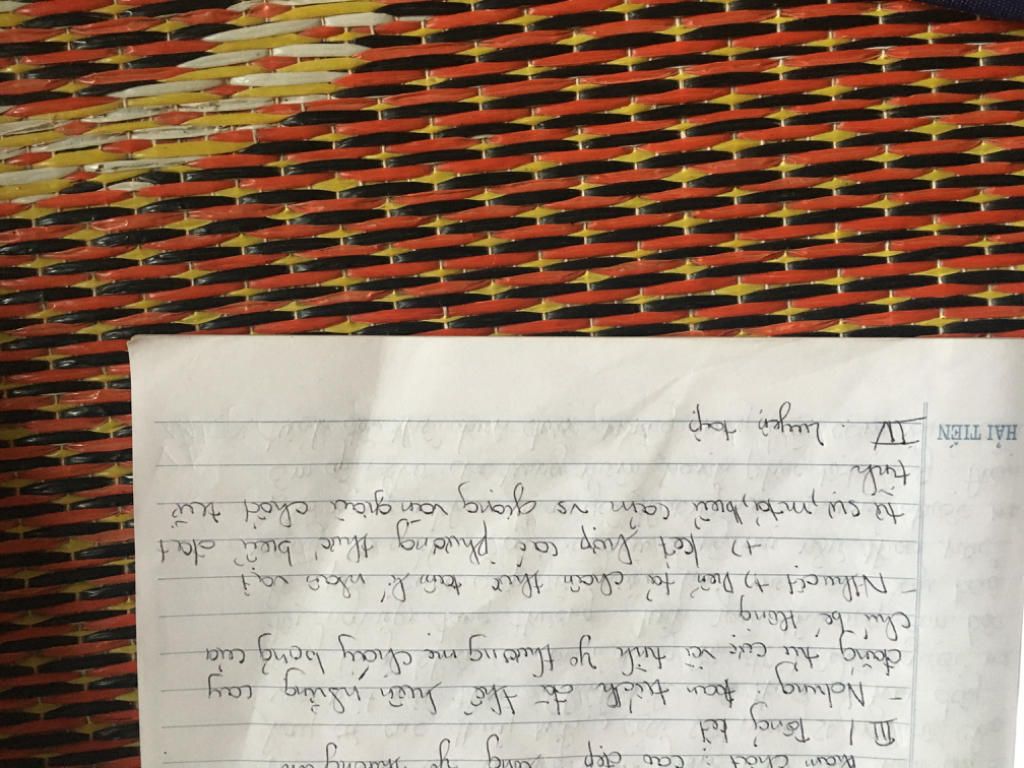 phẩm chất cao đẹp lòng yº thương
III / Tổng kết
- Ndung: đoạn trích đã thể hiện những cay
đắng tủi cực và tình yº thương mẹ cháy bỏng của
chú bé Hồng
- Nthuật +) Diễn tả chân thực tâm lí nhân vật
+) kết hợp các phương thức biểu đạt
tự sự, mtả, biểu cảm vs giọng văn giàu chất trữ
tình
IV. Luyện tập
HẢI TIẾN